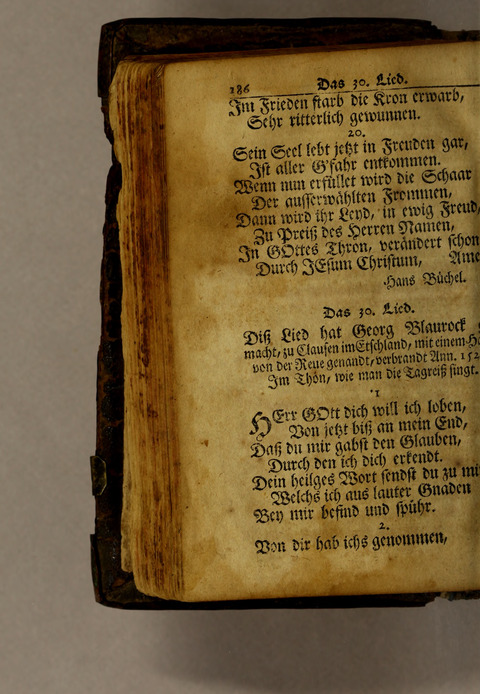 186 Das 30. Lied.
Im Frieden starb die Kron erwarb,
Sehr ritterlich gewunnen.
20.
Sein Seel lebt jetzt in Freuden gar,
Ist aller G'fahr entkommen.
Wenn nun erfüllet wird die Schaar
Der ausserwählten Frommen,
Dann wird ihr Leyd, in ewig Freud,
Zu Preiß des Herren Namen,
In GOttes Thron, verändert schon
Durch JEsum Christum, Ame
Hans Büchel.
Das 30. Lied.
Diß Lied hat Georg Blaurock
macht, zu Clausen im Etschland, mit einem
von der Reue genandt, verbrandt Ann. 152
Im Thon, wie man die Tagreiß singt.
1
HErr GOtt dich will ich loben,
Von jetzt biß an mein End,
Daß du mir gabst den Glauben,
Durch den ich dich erkendt.
Dein heilges Wort sendst du zu mi
Welchs ich aus lauter Gnaden
Bey mir befind und spühr.
2.
Von dir hab ichs genommen,